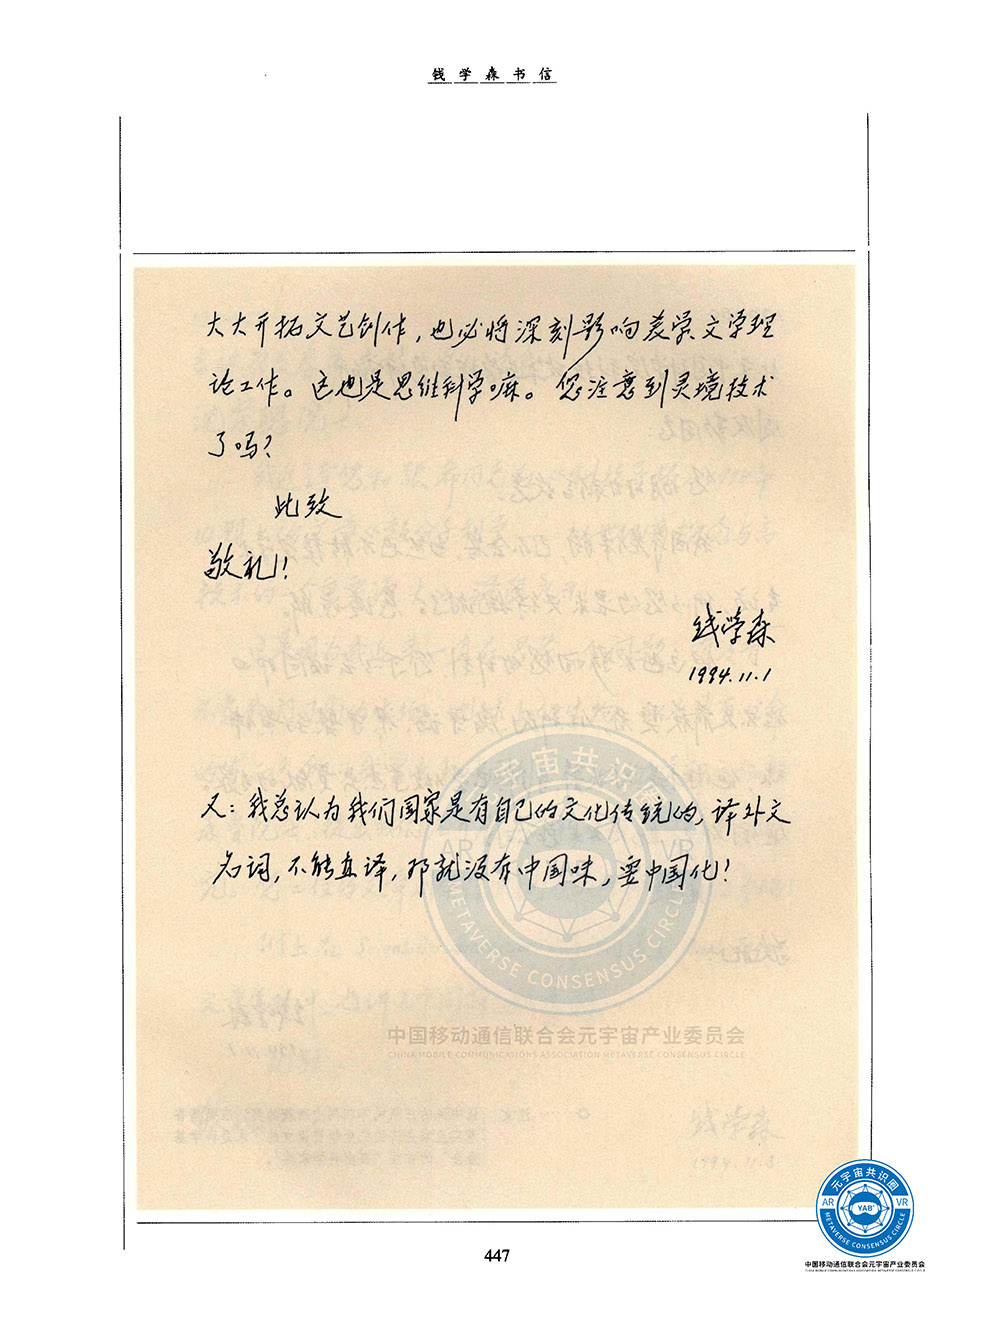 钱学森书信
大大开拓文艺创作，也必将深刻影响美学文学理
论工作。这也是思维科学嘛。您注意到灵境技术
了吗？
此致
敬礼！
钱学森
1994.11.1
又：我总认为我们国家是有自己的文化传统的，译外文
名词，不能直译，那就没有中国味，要中国化！
元宇宙共识圈
AR
VR
METAVERSE CONSENSUS CIRCLE
中国移动通信联合会元宇宙产业委员会
CHINA MOBILE COMMUNICATIONS ASSOCIATION METAVERSE CONSENSUS CIRCLE
钱学森
447
元宇宙共识圈
AR
YAB
VR
METAVERSE CONSENSUS CIRCLE
中国移动通信联合会元宇宙产业委员会
CHINA MOBILE COMMUNICATIONS ASSOCIATION METAVERSE CONSENSUS CIRCLE